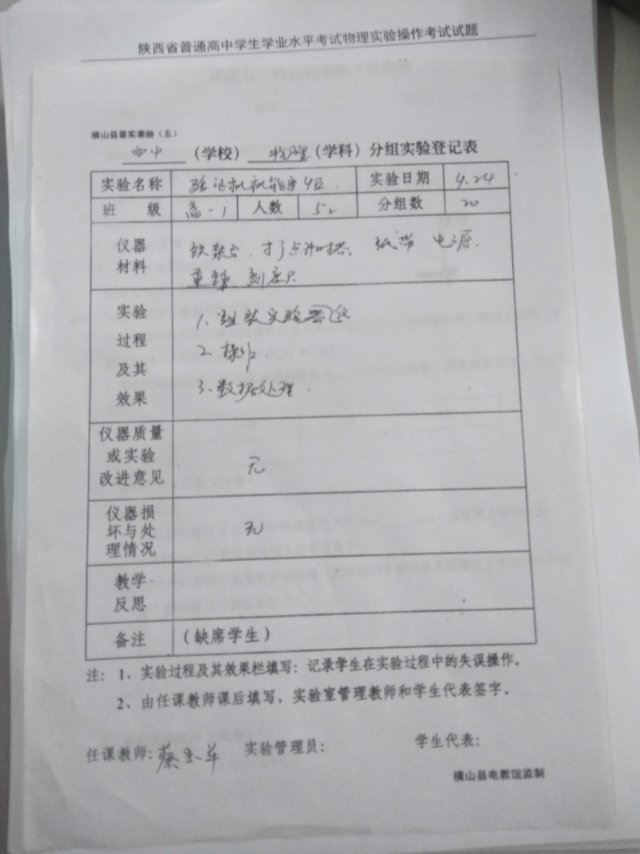 陕西省普通高中学生学业水平考试物理实验操作考试试题
横山县普实表册（五）
四中（学校）物理（学科）分组实验登记表
实验名称 验证机械能守恒 实验日期 4.24
班 级 高一1 人数 52 分组数 20
仪器材料 铁架台、打点计时器、纸带 电源
重锤 刻度尺
实验过程及其效果
1、组装实验器
2、操作
3、数据处理
仪器质量或实验改进意见 无
仪器损坏与处理情况 无
教学反思
备注 （缺席学生）
注：1、实验过程及其效果栏填写：记录学生在实验过程中的失误操作。
2、由任课教师课后填写，实验室管理教师和学生代表签字。
任课教师：蔡 实验管理员： 学生代表：
横山县电教馆监制